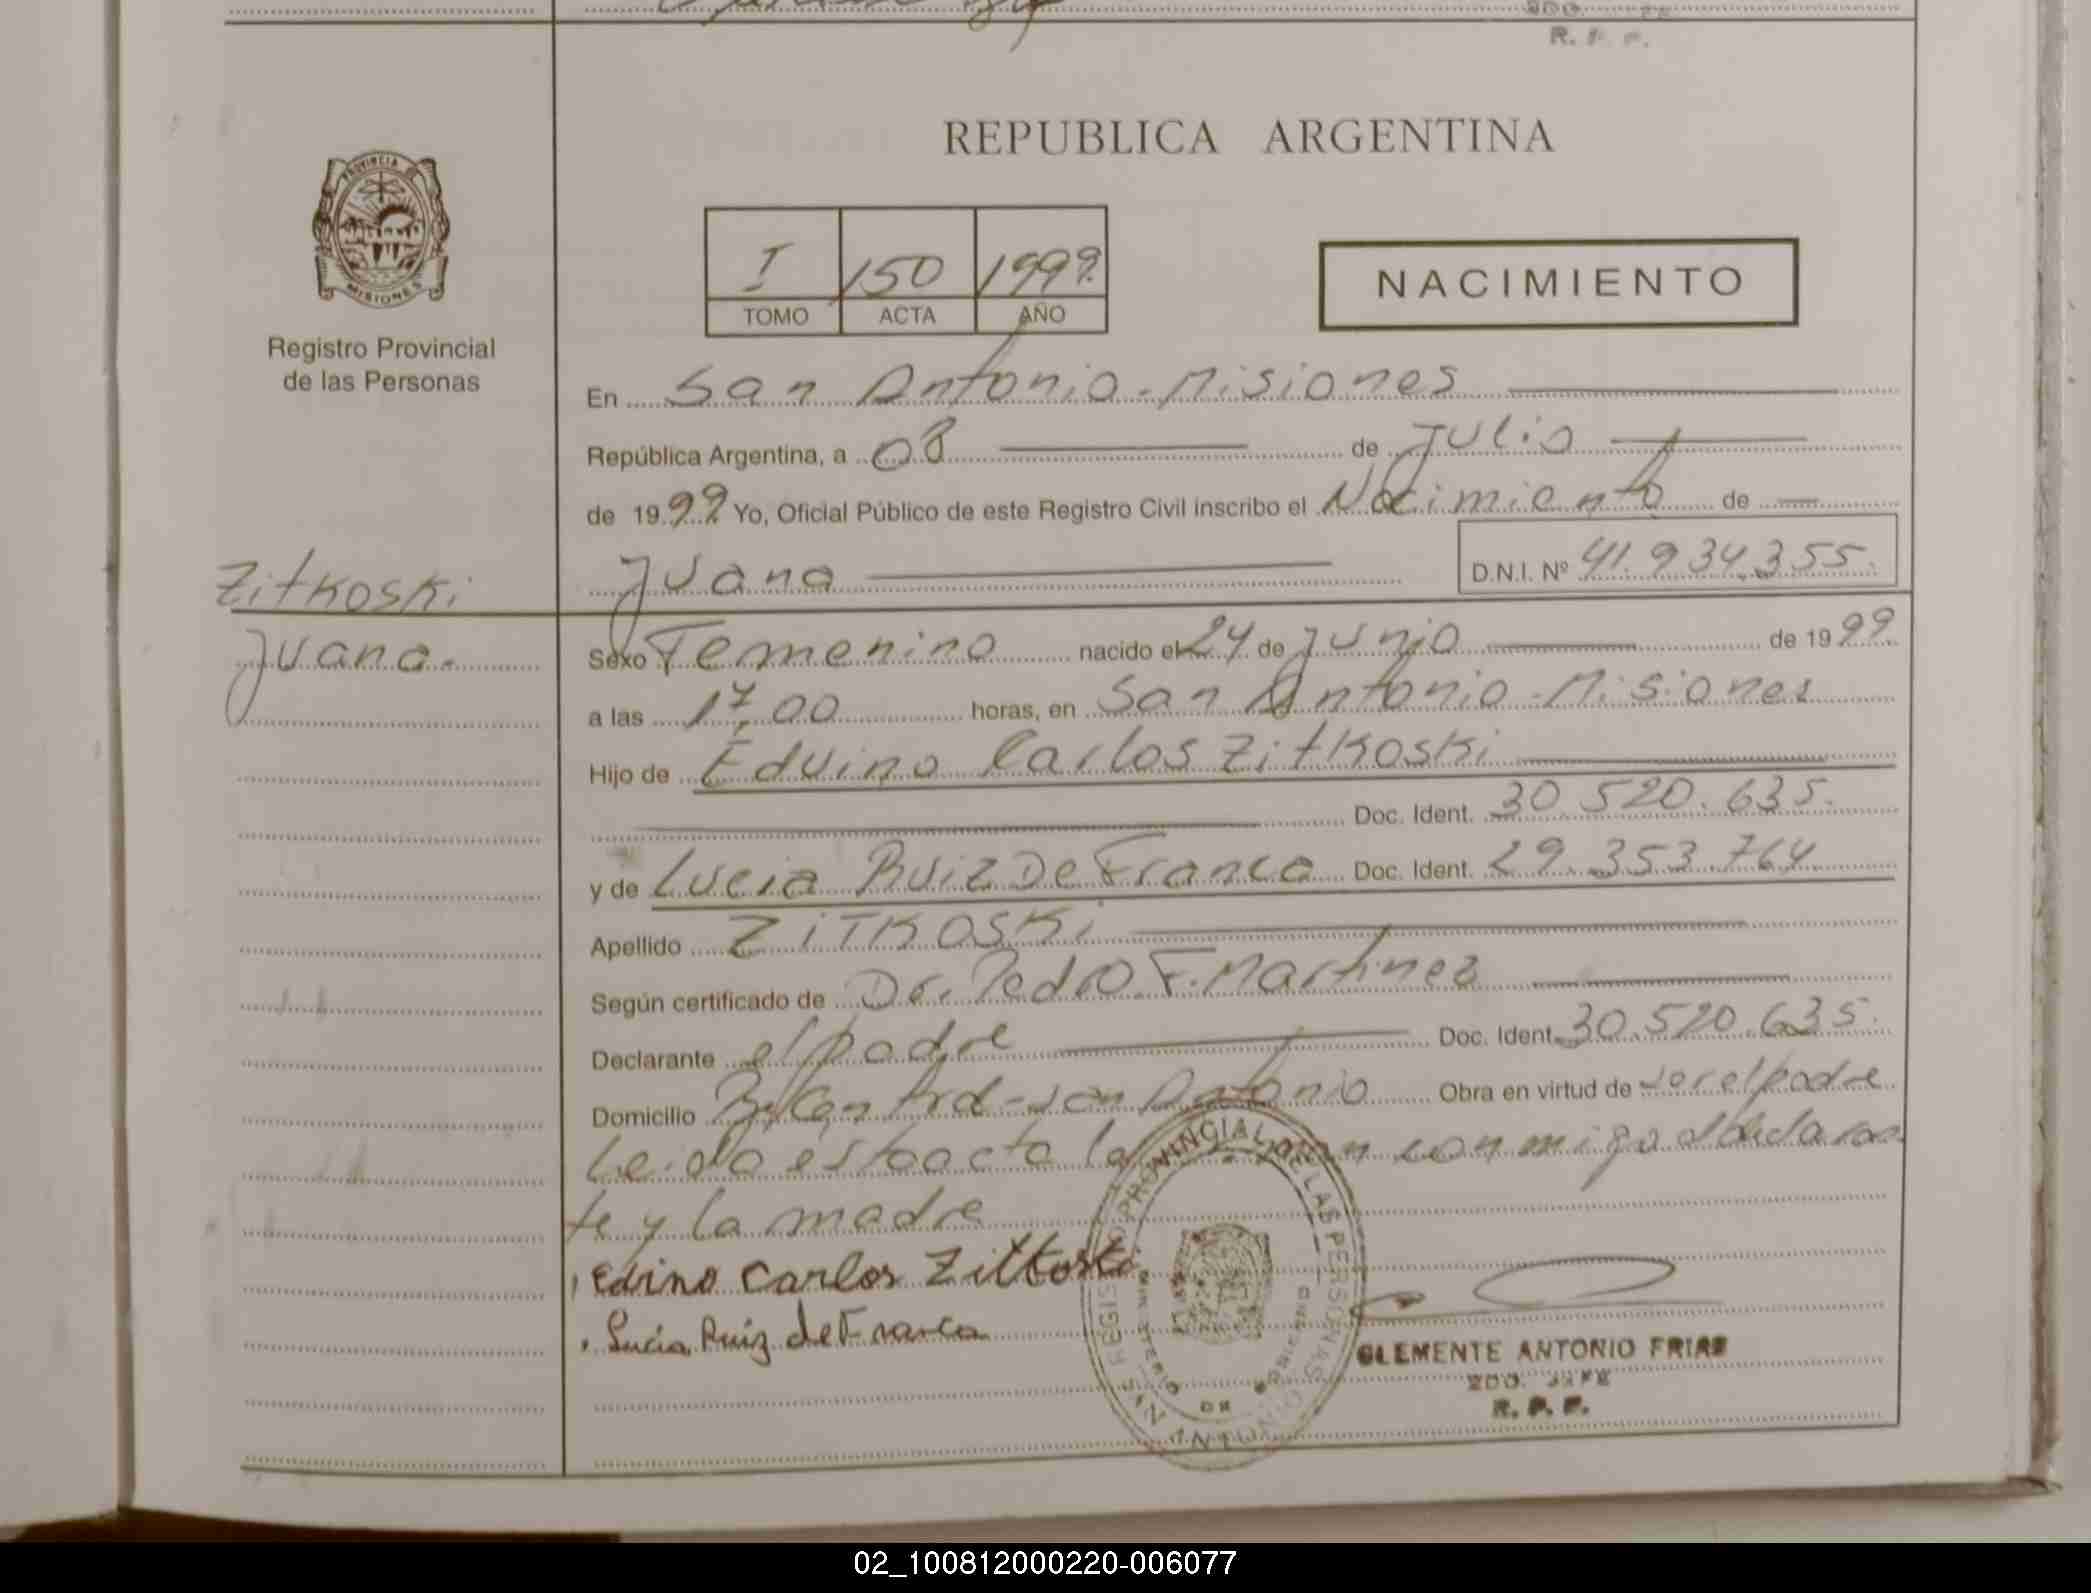 R. P. P.
REPUBLICA ARGENTINA
PROVINCIA DE
MISIONES
Registro Provincial
de las Personas
I 150 1999.
TOMO ACTA AÑO
NACIMIENTO
En San Antonio - Misiones
República Argentina, a 08 de Julio
de 1999 Yo, Oficial Público de este Registro Civil inscribo el Nacimiento de
Juana D.N.I. Nº 41.934.355.
Zitkoski
Juana.
Sexo Femenino nacido el 24 de Junio de 1999
a las 17,00 horas, en San Antonio - Misiones
Hijo de Eduino Carlos Zitkoski
Doc. Ident. 30.520.635.
y de Lucia Ruiz De Franca Doc. Ident. 29.353.764
Apellido ZITKOSKI
Según certificado de Dr. Pedro F. Martinez
Declarante el padre Doc. Ident. 30.520.635.
Domicilio San Antonio Obra en virtud de ser el padre
Leida esta acta la conmigo
te y la madre
Eduino Carlos Zitkoski
Lucia Ruiz de Franca
REGISTRO PROVINCIAL DE LAS PERSONAS
MINISTERIO DE GOBIERNO
SAN ANTONIO
CLEMENTE ANTONIO FRIAS
2DO. JEFE
R. P. P.
02_100812000220-006077